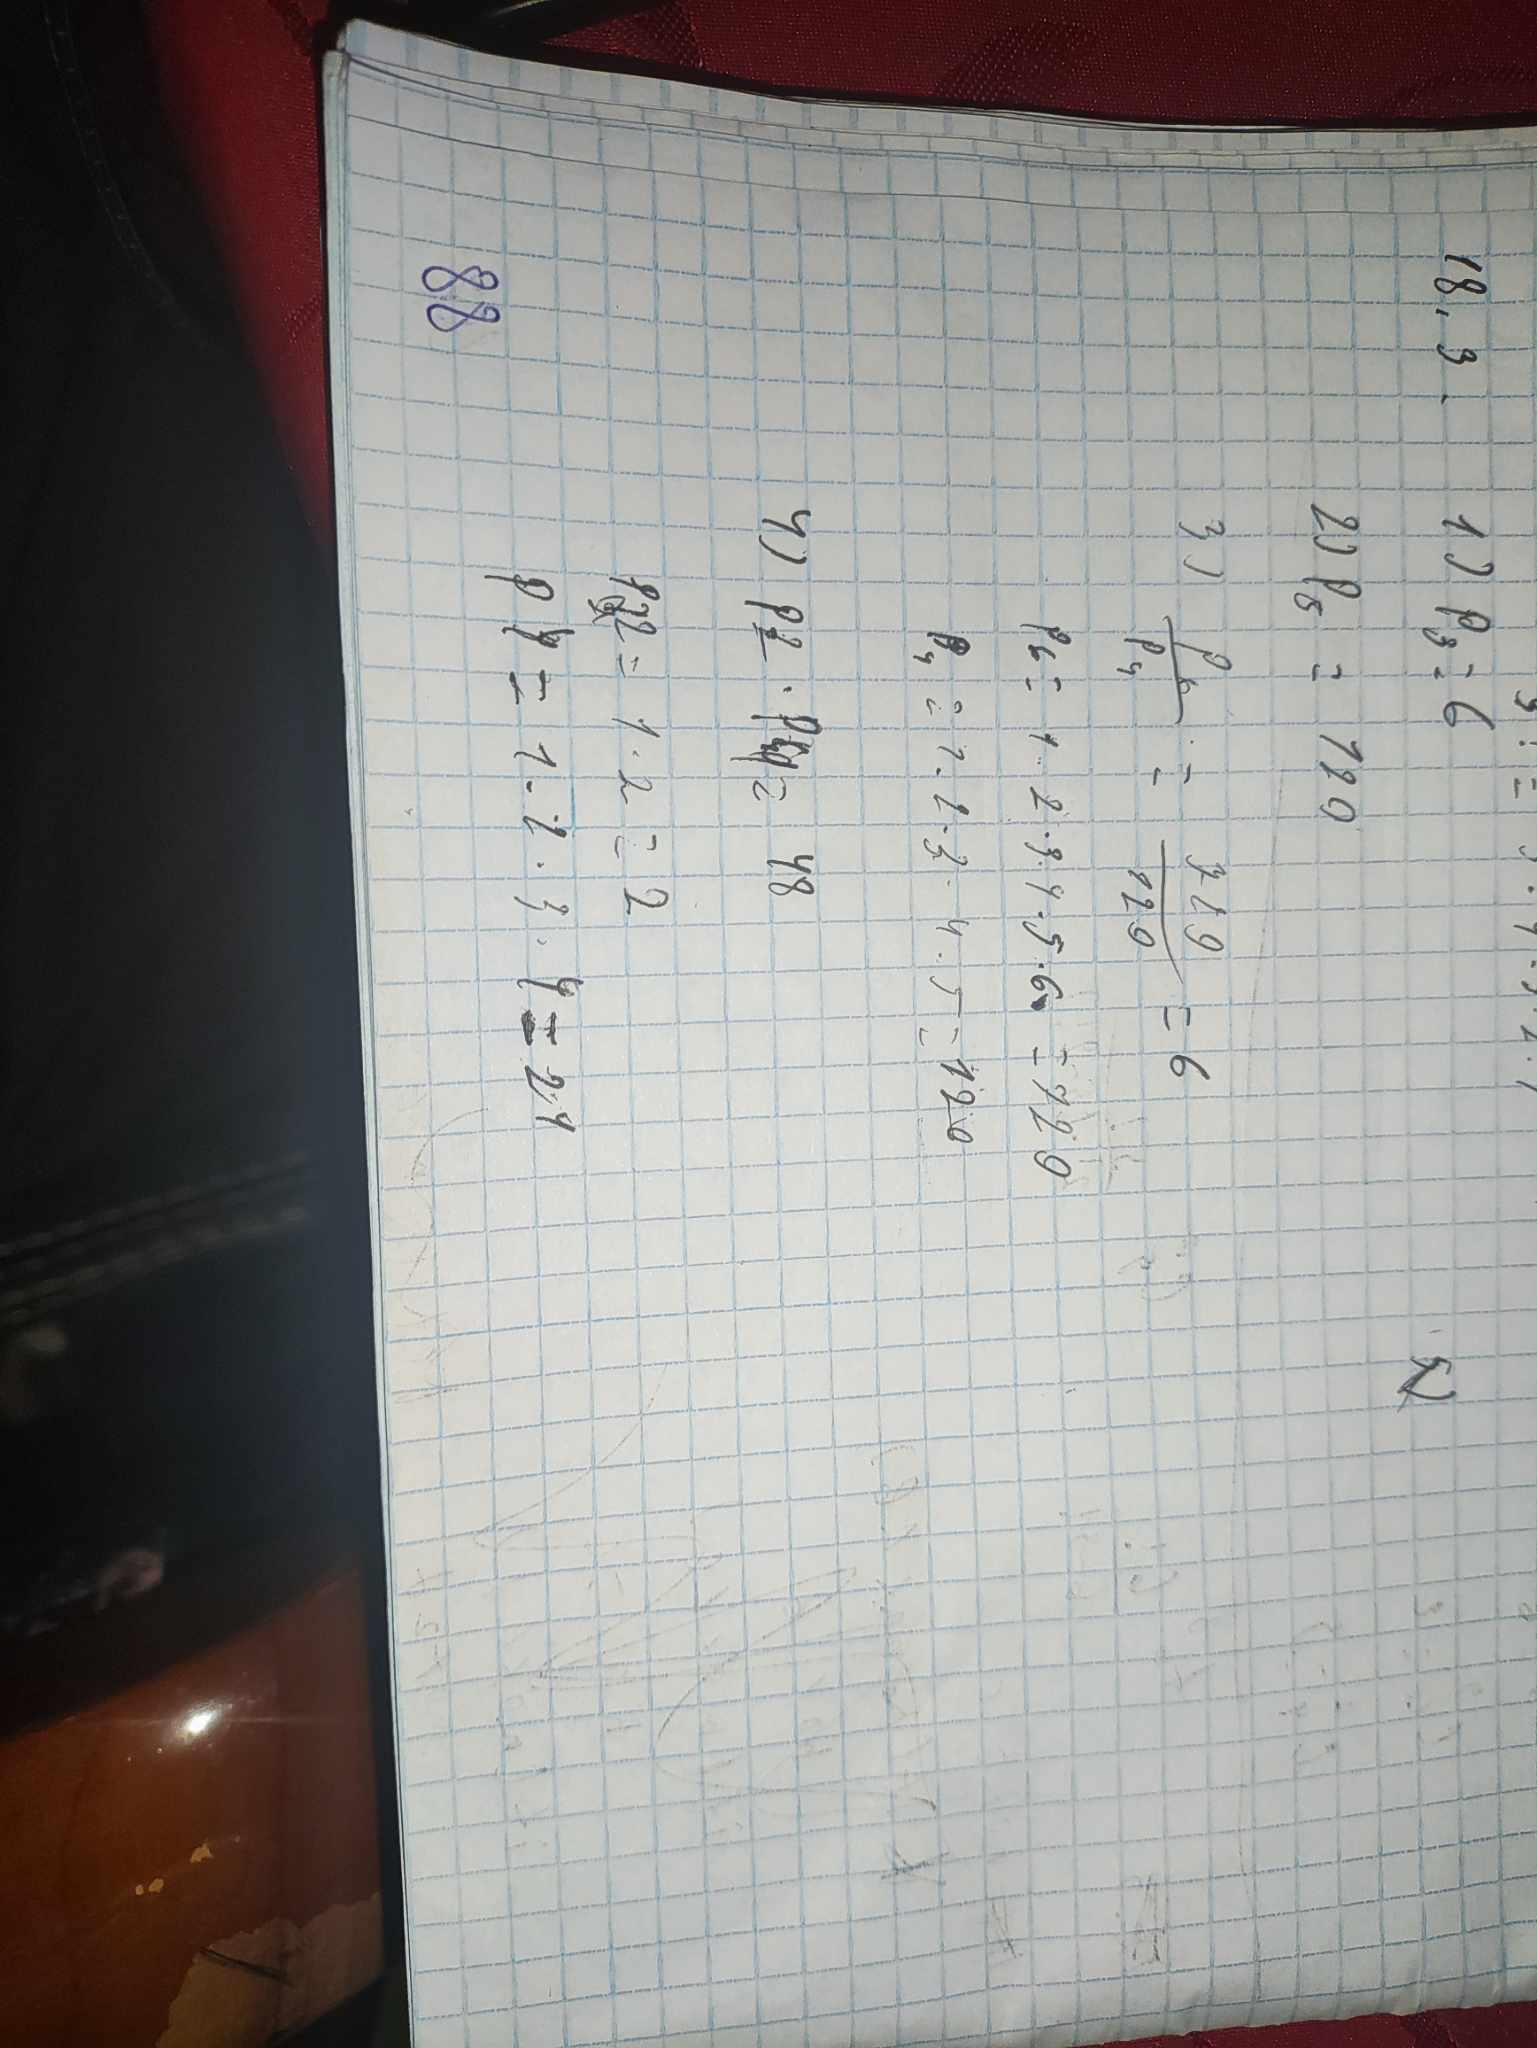 5! = 5 · 4 · 3 · 2 · 1
18.3. 1) P₃ = 6
2) P₅ = 120
3) P₆/P₄ = 720/120 = 6
P₆ = 1 · 2 · 3 · 4 · 5 · 6 = 720
P₄ = 1 · 2 · 3 · 4 · 5 = 120
4) P2 · P4 = 48
P2 = 1 · 2 = 2
P4 = 1 · 2 · 3 · 4 = 24
88